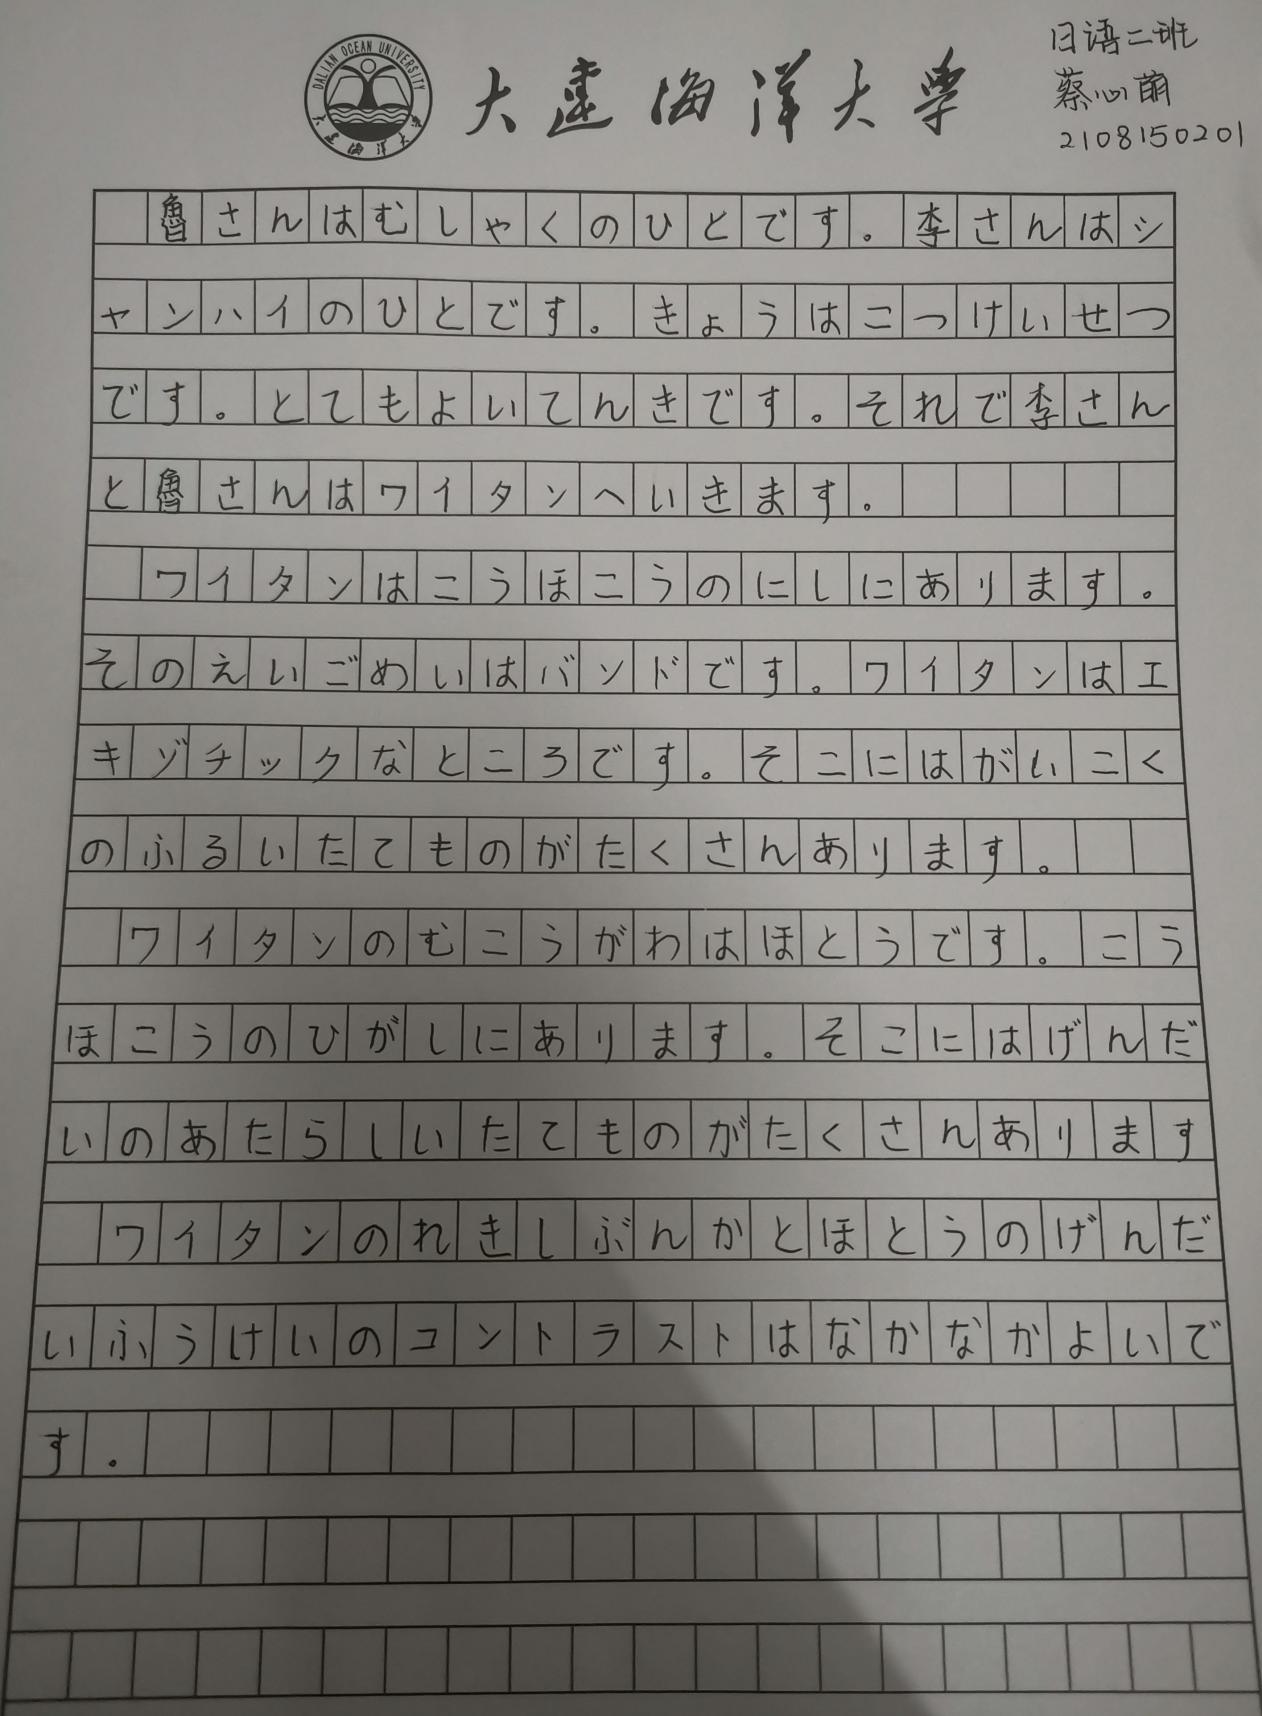 DALIAN OCEAN UNIVERSITY
大连海洋大学
大连海洋大学
日语二班
蔡心萌
2108150201
魯さんはむしゃくのひとです。李さんはシ
ャンハイのひとです。きょうはこっけいせつ
です。とてもよいてんきです。それで李さん
と魯さんはワイタンへいきます。
ワイタンはこうほこうのにしにあります。
そのえいごめいはバンドです。ワイタンはエ
キゾチックなところです。そこにはがいこく
のふるいたてものがたくさんあります。
ワイタンのむこうがわはほとうです。こう
ほこうのひがしにあります。そこにはげんだ
いのあたらしいたてものがたくさんあります
ワイタンのれきしぶんかとほとうのげんだ
いふうけいのコントラストはなかなかよいで
す。